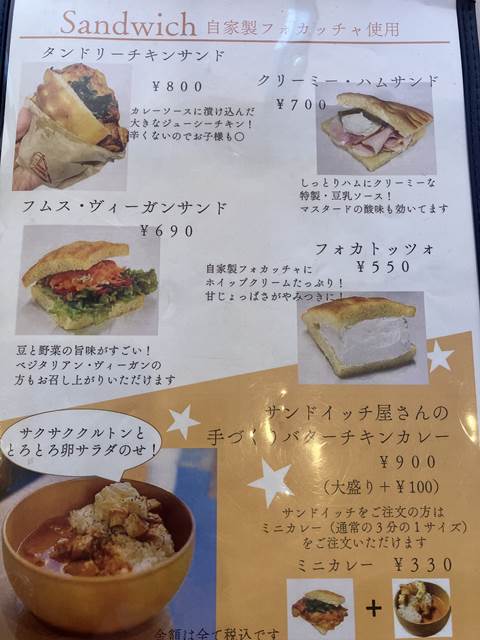 Sandwich 自家製フォカッチャ使用
タンドリーチキンサンド
¥800
カレーソースに漬け込んだ
大きなジューシーチキン！
辛くないのでお子様も〇
クリーミー・ハムサンド
¥700
しっとりハムにクリーミーな
特製・豆乳ソース！
マスタードの酸味も効いてます
フムス・ヴィーガンサンド
¥690
豆と野菜の旨味がすごい！
ベジタリアン・ヴィーガンの
方もお召し上がりいただけます
フォカトッツォ
¥550
自家製フォカッチャに
ホイップクリームたっぷり！
甘じょっぱさがやみつきに！
サクサククルトンと
とろとろ卵サラダのせ！
サンドイッチ屋さんの
手づくりバターチキンカレー
¥900
（大盛り＋¥100）
サンドイッチをご注文の方は
ミニカレー（通常の３分の１サイズ）
をご注文いただけます
ミニカレー ¥330
+
金額は全て税込です